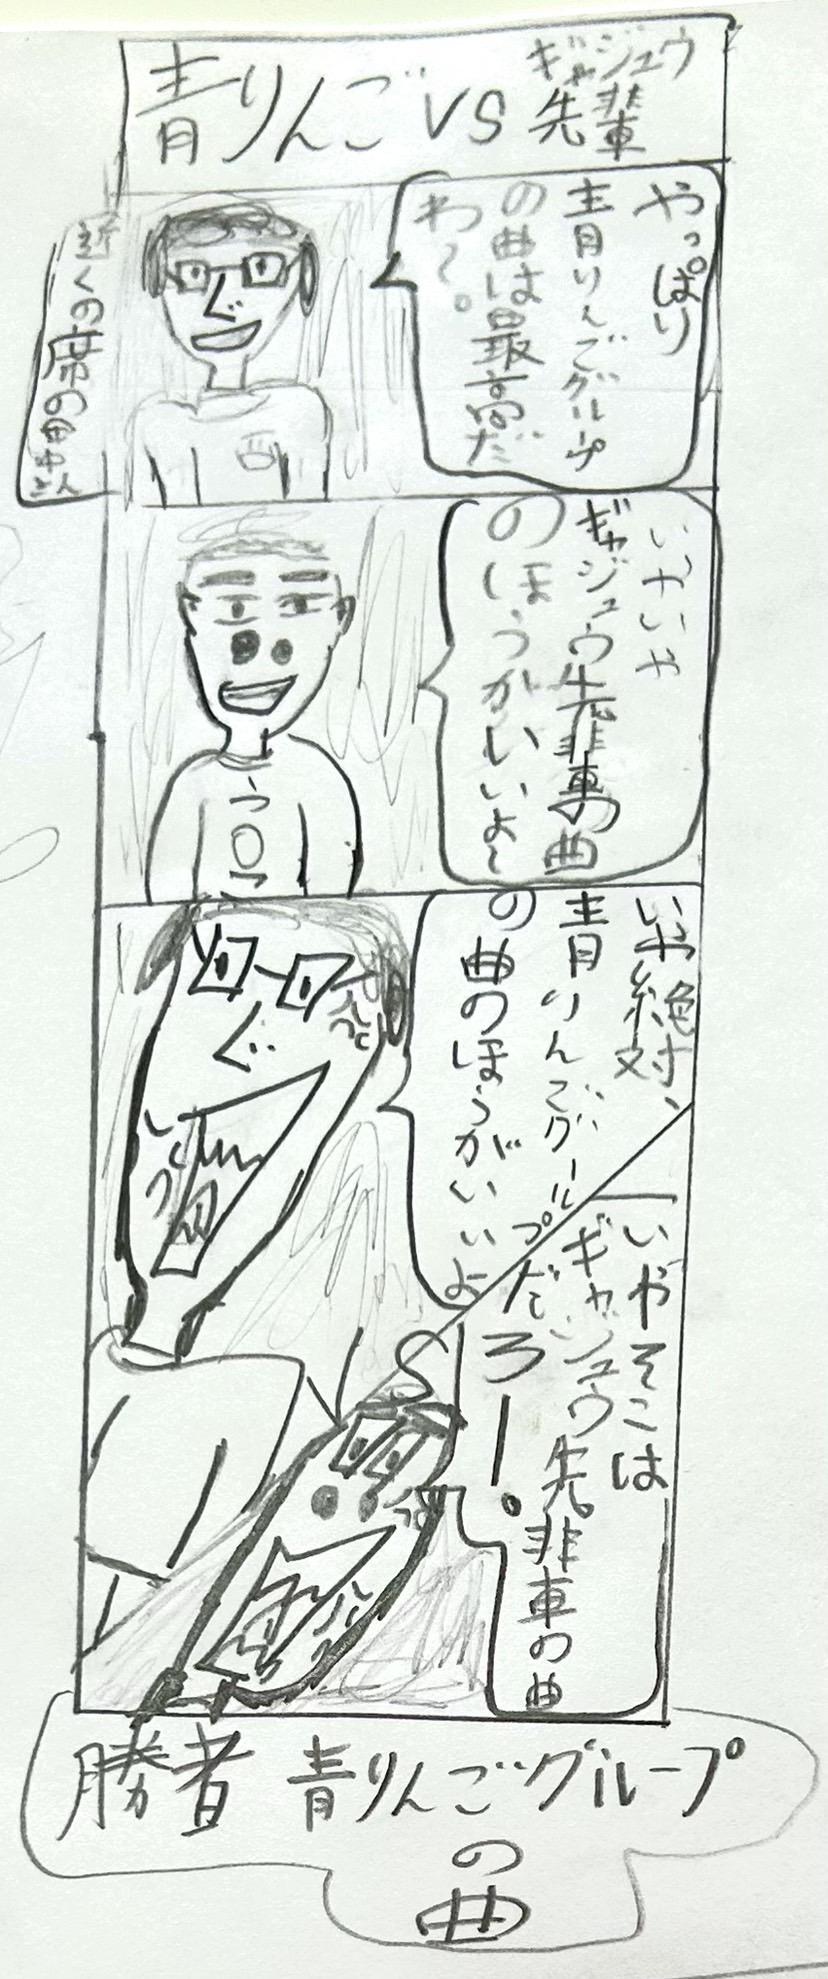 青りんごVSギャジュウ先輩
近くの席の
やっぱり
青りんごグループ
の曲は最高だ
わ〜。
いやいや
ギャジュウ先輩の曲
のほうがいいよ〜
うOこ
いや絶対、
青りんごグループ
の曲のほうがいいよ
いやそこは
ギャジュウ先輩の曲
だろー。
勝者 青りんごグループ
の曲